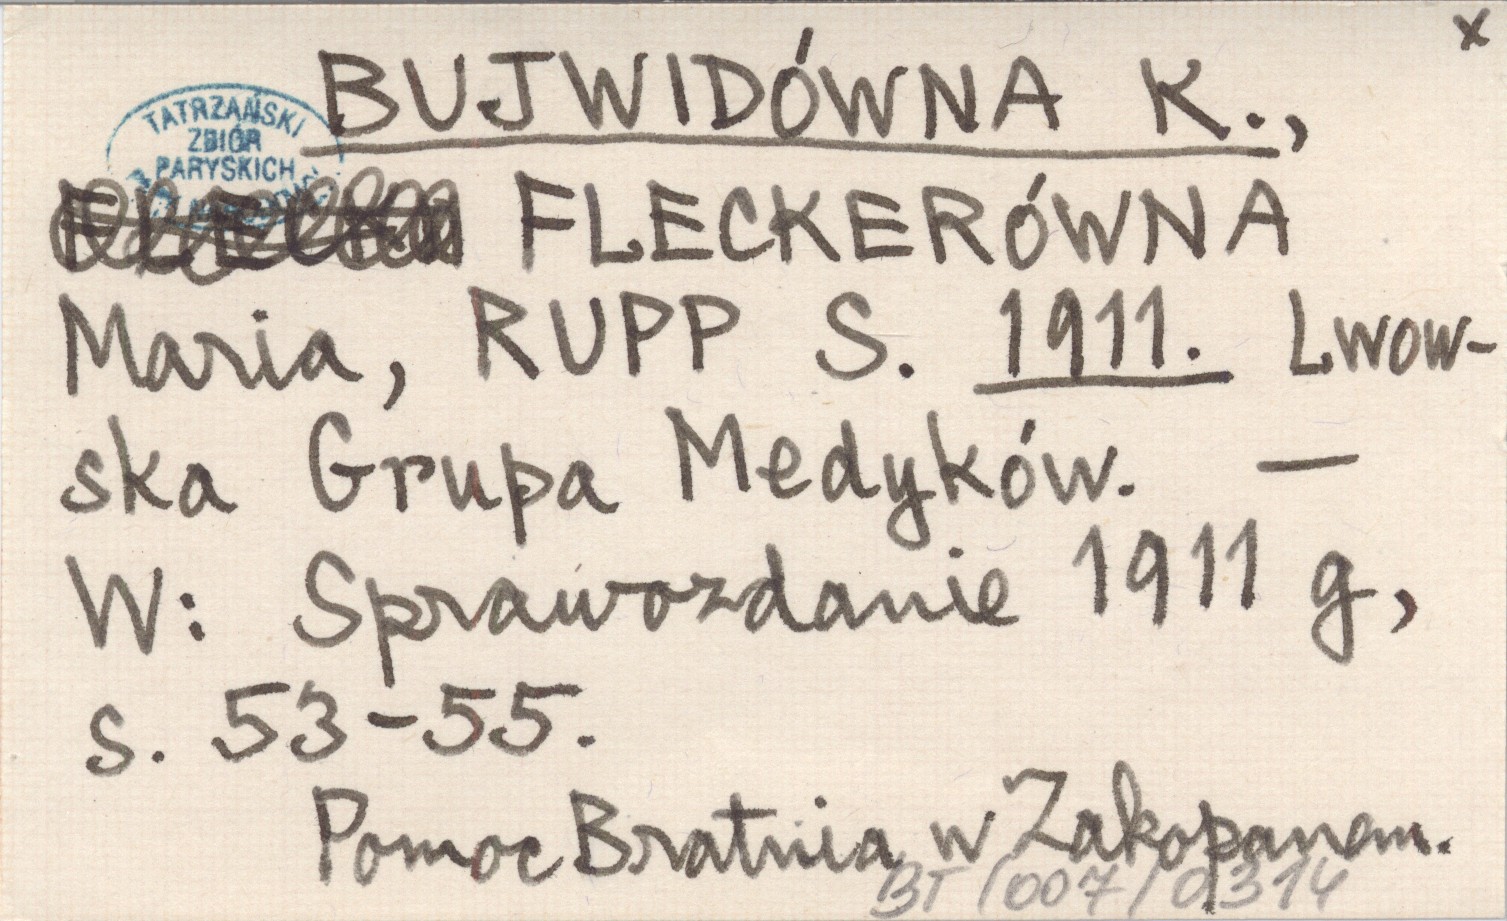 x
BUJWIDÓWNA K.,
TATRZAŃSKI
ZBIÓR
PARYSKICH
FLECKERÓWNA
Maria, RUPP S. 1911. Lwow-
ska Grupa Medyków. —
W: Sprawozdanie 1911 g,
s. 53-55.
Pomoc Bratnia w Zakopanem.
BT/007/0314